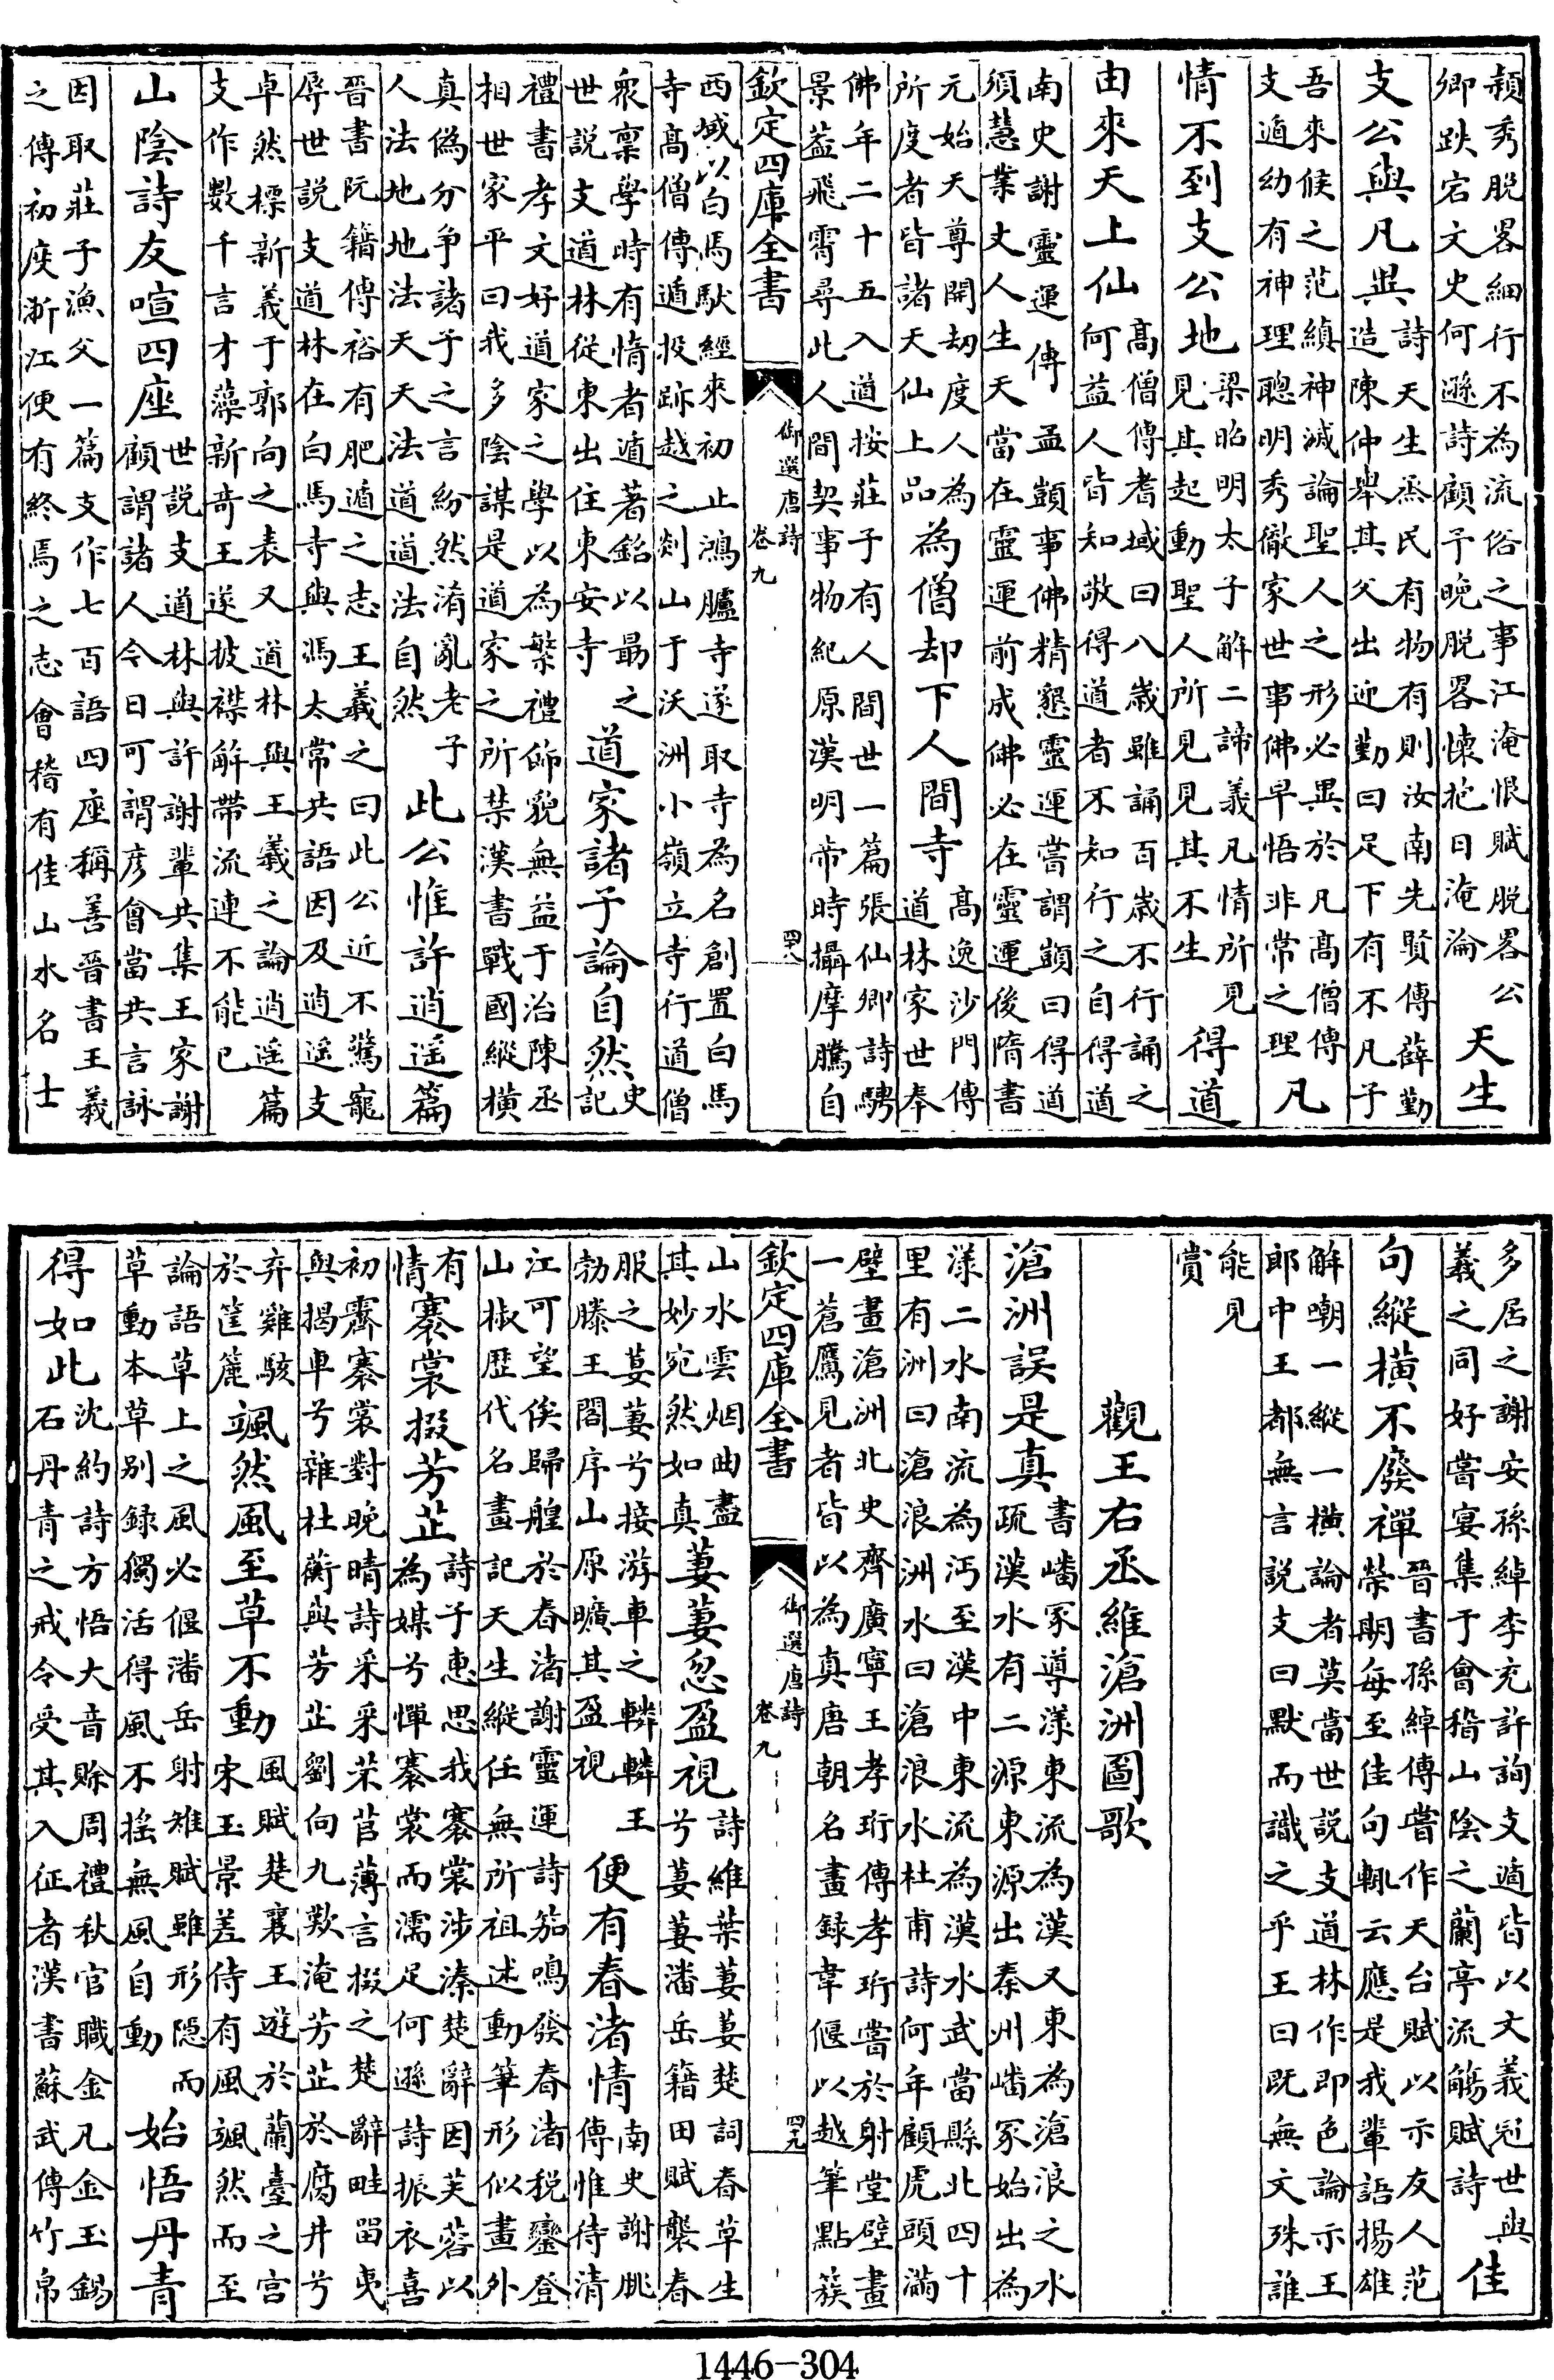 頴秀脱畧細行不為流俗之事江淹恨賦脱畧公
卿跌宕文史何遜詩顧予晚脱畧懷抱日淹淪
天生
支公與凡異
詩天生烝民有物有則汝南先賢傳薛勤
造陳仲舉其父出迎勤曰足下有不凡子
吾來候之范縝神滅論聖人之形必異於凡高僧傳
支遁幼有神理聰明秀徹家世事佛早悟非常之理
凡
情不到支公地
梁昭明太子解二諦義凡情所見
見其起動聖人所見見其不生
得道
由來天上仙
高僧傳耆域曰八歳雖誦百歳不行誦之
何益人皆知敬得道者不知行之自得得道
南史謝靈運傳孟顗事佛精懇靈運嘗謂顗曰得道
須慧業丈人生天當在靈運前成佛必在靈運後隋書
元始天尊開劫度人為
所度者皆諸天仙上品
為僧却下人間寺
高逸沙門傳
道林家世奉
佛年二十五入道按莊子有人間世一篇張仙卿詩騁
景蓋飛霄尋此人間契事物紀原漢明帝時攝摩騰自
欽定四庫全書
御選唐詩
卷九
四八
西域以白馬馱經來初止鴻臚寺遂取寺為名創置白馬
寺高僧傳遁投跡越之剡山于沃洲小嶺立寺行道僧
衆稟學時有惰者遁著銘以朂之
世説支道林從東出住東安寺
道家諸子論自然
史
記
禮書孝文好道家之學以為繁禮飾貌無益于治陳丞
相世家平曰我多陰謀是道家之所禁漢書戰國縱橫
真偽分争諸子之言紛然淆亂老子
人法地地法天天法道道法自然
此公惟許逍遥篇
晉書阮籍傳裕有肥遁之志王羲之曰此公近不驚寵
辱世説支道林在白馬寺與馮太常共語因及逍遥支
卓然標新義于郭向之表又道林與王羲之論逍遥篇
支作數千言才藻新竒王遂披襟解帶流連不能已
山陰詩友喧四座
世説支道林與許謝輩共集王家謝
顧謂諸人今日可謂彦會當共言詠
因取莊子漁父一篇支作七百語四座稱善晉書王羲
之傳初度浙江便有終焉之志會稽有佳山水名士
多居之謝安孫綽李充許詢支遁皆以文義冠世與
義之同好嘗宴集于會稽山陰之蘭亭流觴賦詩
佳
句縱橫不廢禪
晉書孫綽傳嘗作天台賦以示友人范
榮期每至佳句輒云應是我輩語揚雄
解嘲一縱一橫論者莫當世説支道林作即色論示王
郎中王都無言説支曰默而識之乎王曰既無文殊誰
能見
賞
觀王右丞維滄洲圖歌
滄洲誤是真
書嶓冢導漾東流為漢又東為滄浪之水
疏漢水有二源東源出秦州嶓冢始出為
漾二水南流為沔至漢中東流為漢水武當縣北四十
里有洲曰滄浪洲水曰滄浪水杜甫詩何年顧虎頭滿
壁畫滄洲北史齊廣寧王孝珩傳孝珩嘗於㕔堂壁畫
一蒼鷹見者皆以為真唐朝名畫録韋偃以越筆點簇
欽定四庫全書
御選唐詩
卷九
四九
山水雲烟曲盡
其妙宛然如真
萋萋忽盈視
詩維葉萋萋楚詞春草生
兮萋萋潘岳籍田賦襲春
服之萋萋兮接游車之轔轔王
勃滕王閣序山原曠其盈視
便有春渚情
南史謝朓
傳惟待清
江可望俟歸艎於春渚謝靈運詩笳鳴發春渚税鑾登
山椒歴代名畫記天生縱任無所祖述動筆形似畫外
有
情
褰裳掇芳芷
詩子恵思我褰裳涉溱楚辭因芙蓉以
為媒兮憚褰裳而濡足何遜詩振衣喜
初霽褰裳對晚晴詩采采芣苢薄言掇之楚辭畦留夷
與揭車兮雜杜蘅與芳芷劉向九歎淹芳芷於腐井兮
弃雞駭
於筐簏
颯然風至草不動
風賦楚襄王遊於蘭臺之宫
宋玉景差侍有風颯然而至
論語草上之風必偃潘岳射雉賦雖形隱而
草動本草别録獨活得風不搖無風自動
始悟丹青
得如此
沈約詩方悟大音賒周禮秋官職金凡金玉錫
石丹青之戒令受其入征者漢書蘇武傳竹帛
1446-304